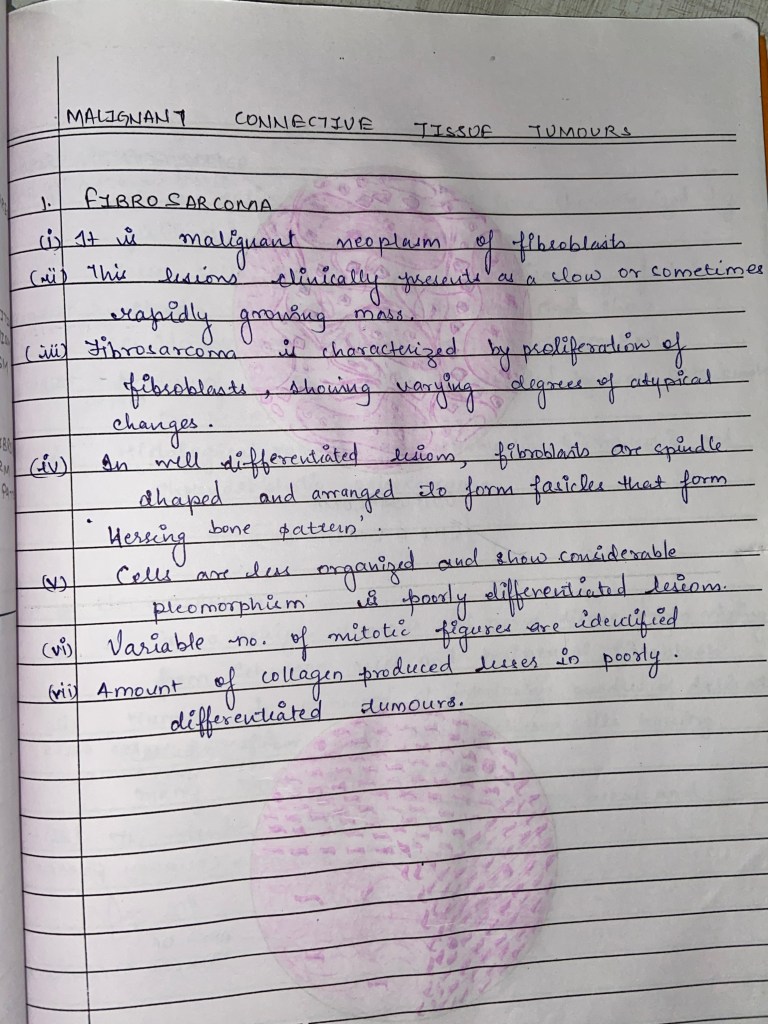 MALIGNANT CONNECTIVE TISSUE TUMOURS
1. FIBROSARCOMA
(i) It is malignant neoplasm of fibroblasts
(ii) This lesions clinically presents as a slow or sometimes
rapidly growing mass.
(iii) Fibrosarcoma is characterized by proliferation of
fibroblasts, showing varying degrees of atypical
changes.
(iv) In well differentiated lesions, fibroblasts are spindle
shaped and arranged to form fasicles that form
'Herring bone pattern'.
(v) Cells are less organized and show considerable
pleomorphism is poorly differentiated lesions.
(vi) Variable no. of mitotic figures are identified
(vii) Amount of collagen produced in poorly.
differentiated tumours.